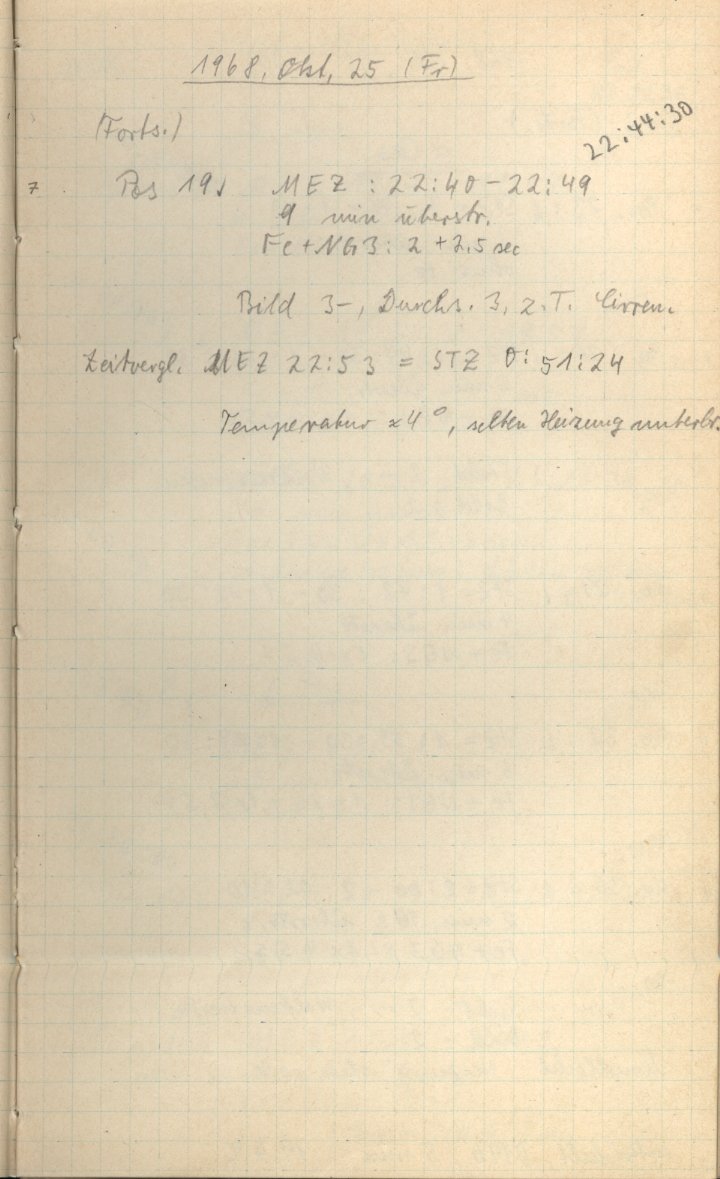 1968, Okt, 25 (Fr)
(Forts.)
22:44:30
7 Pos 19. MEZ : 22:40 - 22:49
9 min überstr.
Fe + NG3: 2 + 2,5 sec
Bild 3-, Durchs. 3, z.T. Cirren.
Zeitvergl. MEZ 22:53 = STZ 0:51:24
Temperatur ≈ 4°, selten Heizung unterbr.